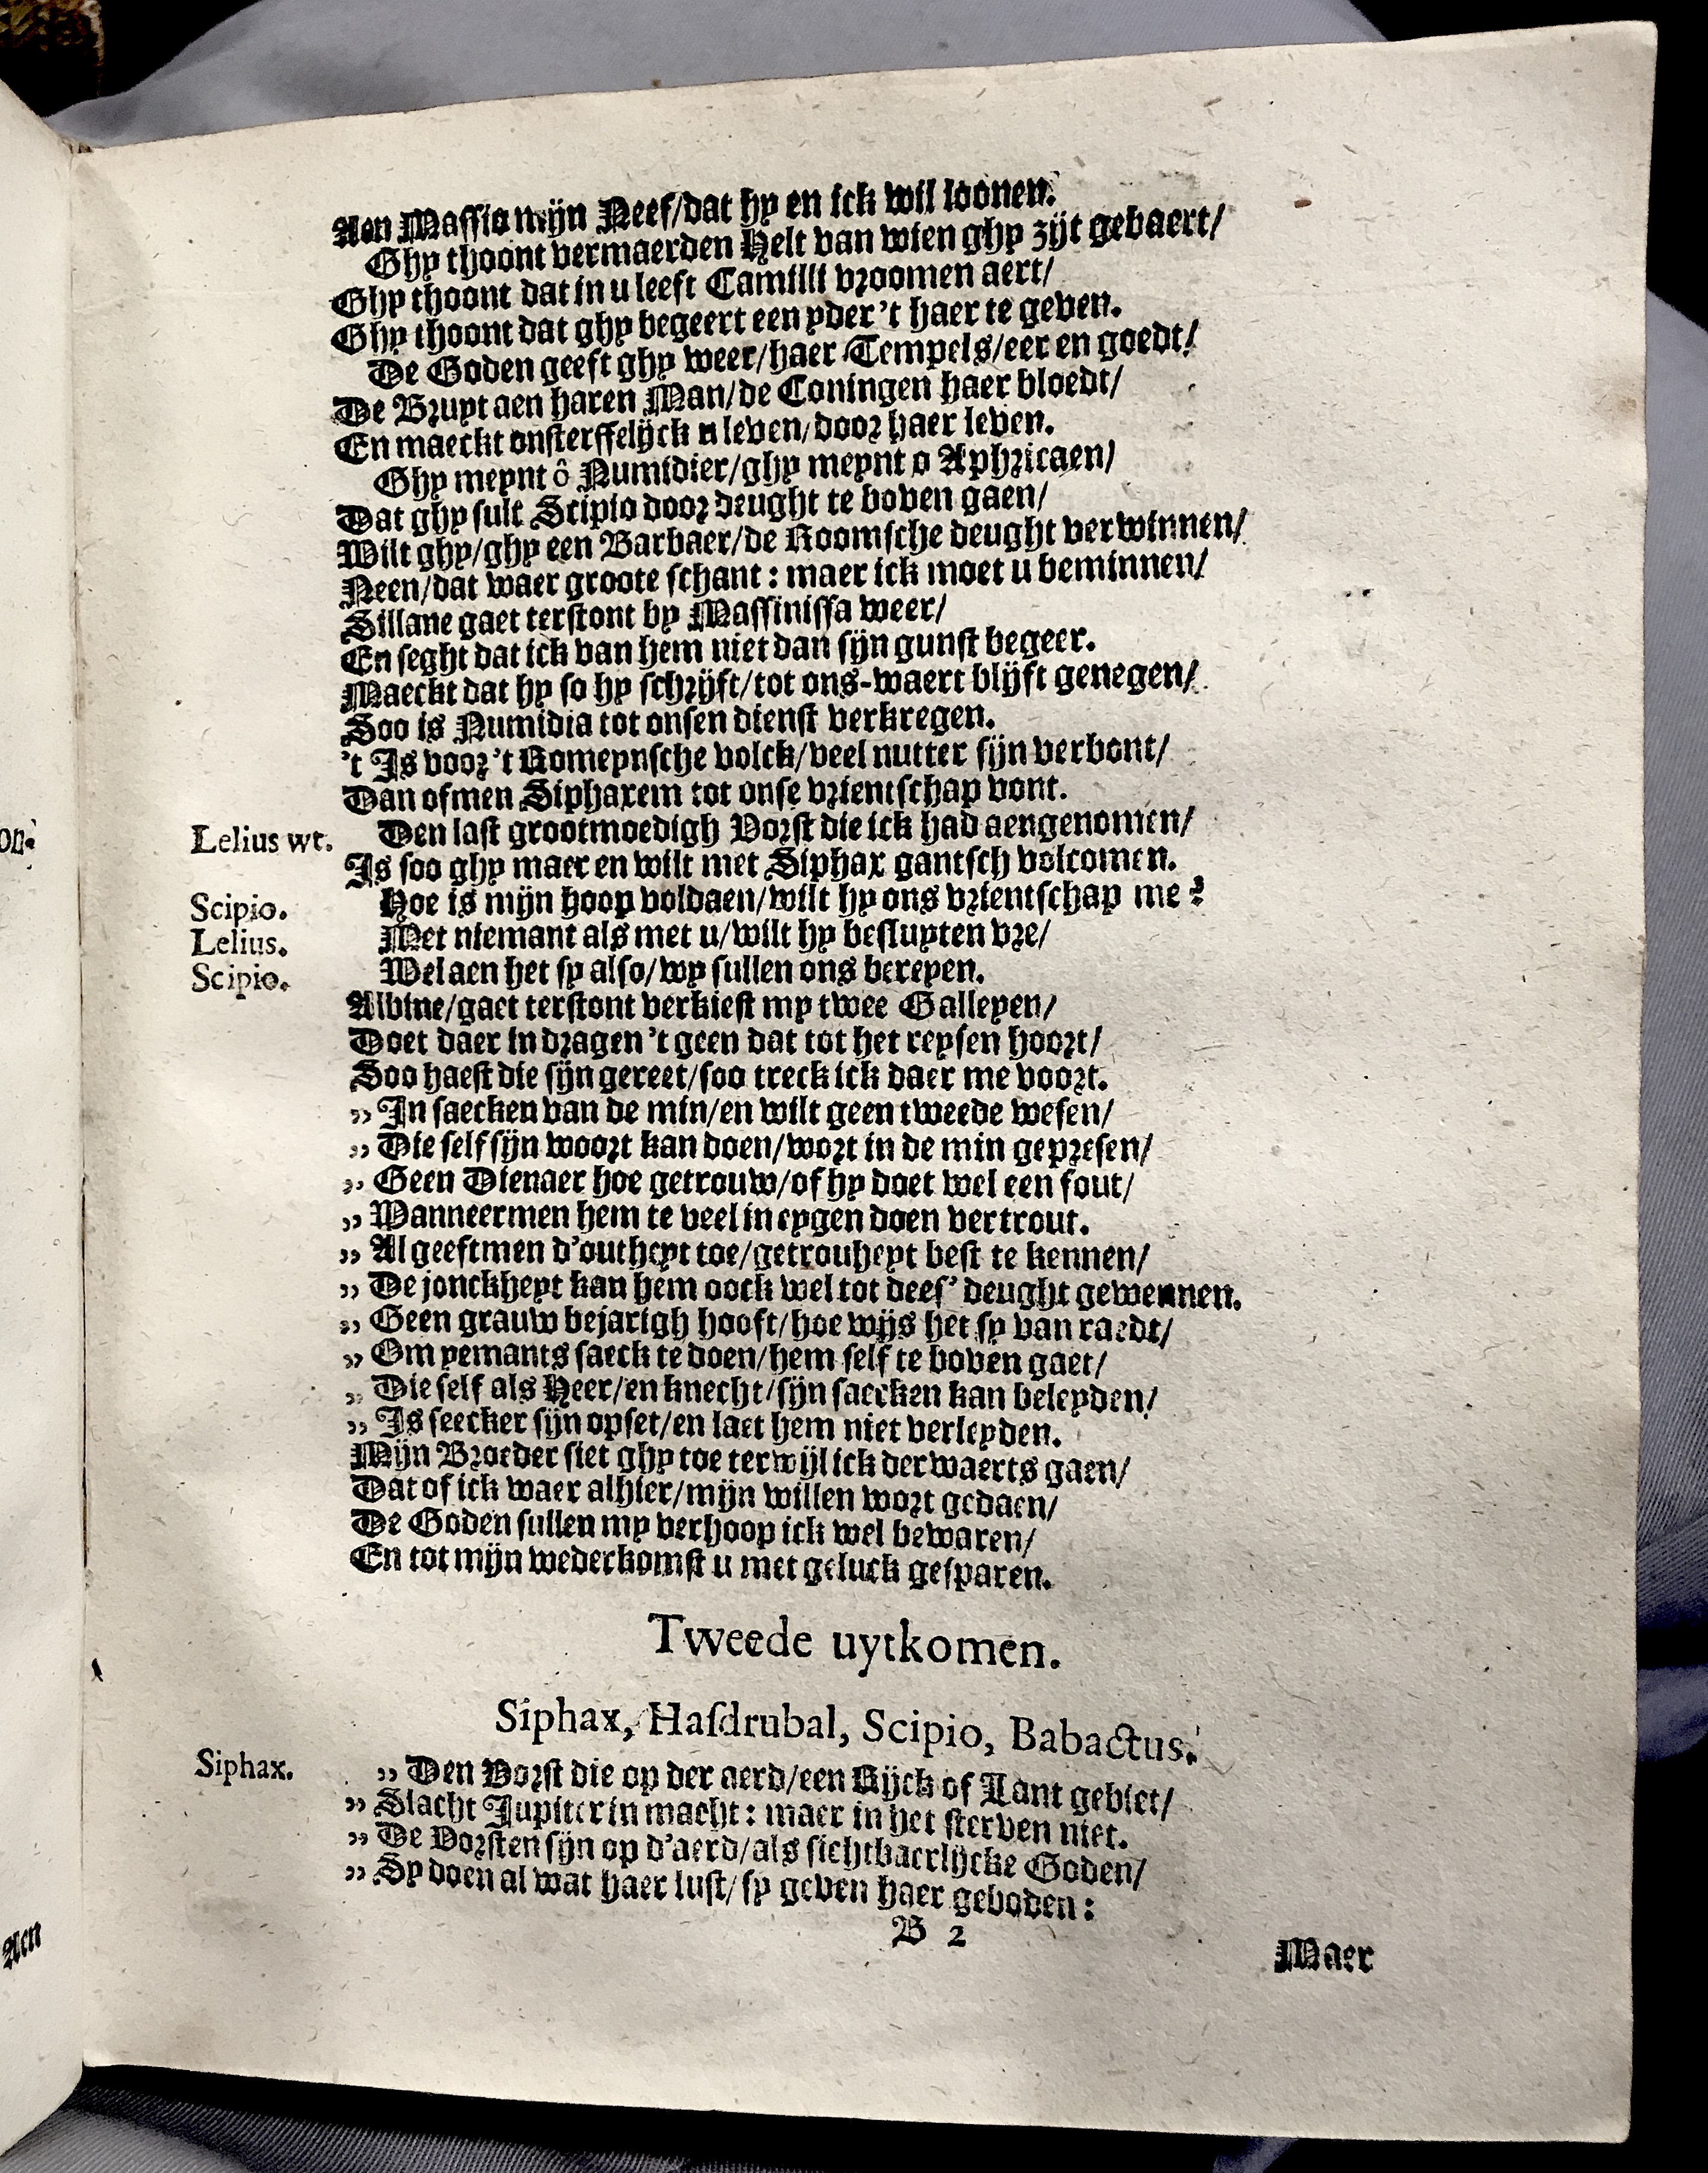 Aen Massia mijn Neef/dat hy en ick wil loonen.
Ghy thoont vermaerden Helt van wien ghy zijt gebaert/
Ghy thoont dat in u leeft Camilli vroomen aert/
Ghy thoont dat ghy begeert een yder 't haer te geven.
De Goden geeft ghy weer/haer Tempels/eer en goedt/
De Bruyt aen haren Man/de Coningen haer bloedt/
En maeckt onsterffelijck u leven/door haer leven.
Ghy meynt ô Numidier/ghy meynt o Aphricaen/
Dat ghy sult Scipio door deught te boven gaen/
Wilt ghy/ghy een Barbaer/de Roomsche deught verwinnen/
Neen/dat waer groote schant: maer ick moet u beminnen/
Sillane gaet terstont by Massinissa weer/
En seght dat ick van hem niet dan sijn gunst begeer.
Maeckt dat hy so hy schrijft/tot ons-waert blijft genegen/
Soo is Numidia tot onsen dienst verkregen.
't Is voor 't Romeynsche volck/veel nutter sijn verbont/
Dan ofmen Siphaxem tot onse vrientschap vont.
Lelius wt. Den last grootmoedigh Vorst die ick had aengenomen/
Is soo ghy maer en wilt met Siphax gantsch volcomen.
Scipio. Hoe is mijn hoop voldaen/wilt hy ons vrientschap me?
Lelius. Met niemant als met u/wilt hy besluyten vre/
Scipio. Wel aen het sy also/wy sullen ons bereyen.
Albine/gaet terstont verkiest my twee Galleyen/
Doet daer in dragen 't geen dat tot het reysen hoort/
Soo haest die sijn gereet/soo treck ick daer me voort.
„ In saecken van de min/en wilt geen tweede wesen/
„ Die self sijn woort kan doen/wort in de min gepresen/
„ Geen Dienaer hoe getrouw/of hy doet wel een fout/
„ Wanneermen hem te veel in eygen doen vertrout.
„ Al geeftmen d'outheyt toe/getrouheyt best te kennen/
„ De jonckheyt kan hem oock wel tot dees' deught gewennen.
„ Geen grauw bejarigh hooft/hoe wijs het sy van raedt/
„ Om yemants saeck te doen/hem self te boven gaet/
„ Die self als Heer/en knecht/sijn saecken kan beleyden/
„ Is seecker sijn opset/en laet hem niet verleyden.
Mijn Broeder siet ghy toe terwijl ick derwaerts gaen/
Dat of ick waer alhier/mijn willen wort gedaen/
De Goden sullen my verhoop ick wel bewaren/
En tot mijn wederkomst u met geluck gesparen.
Tweede uytkomen.
Siphax, Hasdrubal, Scipio, Babactus.
Siphax. „ Den Vorst die op der aerd/een Rijck of Lant gebiet/
„ Slacht Jupiter in macht: maer in het sterven niet.
„ De Vorsten sijn op d'aerd/als sichtbaerlijcke Goden/
„ Sy doen al wat haer lust/sy geven haer geboden:
B 2
Maer
Aen